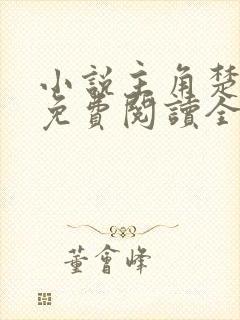 小説主角楚
免費閱讀全
董會峰